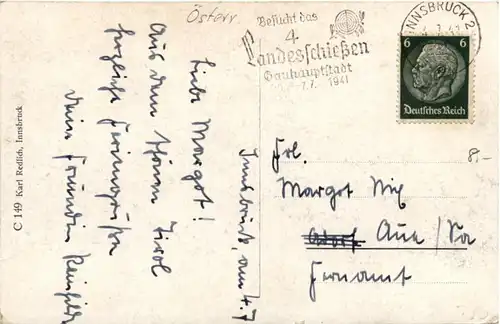 Österr.
Besucht das
4.
Landesschießen
Gauhauptstadt
7.7. 1941
INNSBRUCK 2
6 6
Deutsches Reich
8.-
Innsbruck, am 4.7
Liebe Margot!
Aus dem schönen Tirol
herzliche Feriengrüße
Deine Freundin
Frl.
Margot Nix
Aue/Sa
Fernamt
C 149 Karl Redlich, Innsbruck